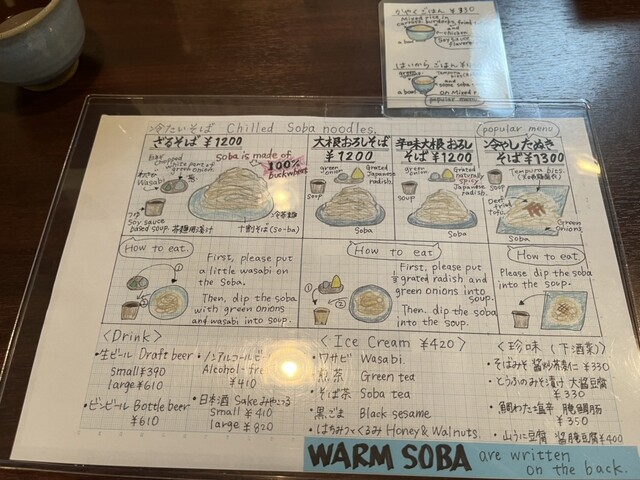 かやくごはん ¥330
Mixed rice in
carrots, burdocks, fried tofu
and
chicken
a bowl
Soy sauce
flavors
はいからごはん
green onion
Tempura bits
a bowl
on Mixed rice
popular menu
冷たいそば Chilled Soba noodles.
popular menu
ざるそば ¥1200
Soba is made of
100%
buckwheat
Chopped
white part of
green onion.
わさび
Wasabi
つゆ
Soy sauce
based soup.
十割そば (so-ba)
大根おろしそば
¥1200
green onion
Grated
Japanese
radish.
soup
Soba
辛味大根おろし
そば ¥1200
green onion
Grated
naturally
spicy
Japanese
radish.
soup
Soba
冷やしたぬき
そば ¥1300
Tempura bits.
soup
Deep
fried
tofu.
Green
onions
Soba
How to eat.
First, please put
a little wasabi on
the Soba.
Then, dip the soba
with green onions
and wasabi into soup.
How to eat
First, please put
1/3 grated radish and
green onions into
soup.
Then, dip the soba
into the soup.
How to eat
Please dip the soba
into the soup.
<Drink>
・生ビール Draft beer
small ¥390
large ¥610
・ビンビール Bottle beer
¥610
・ノンアルコールビール
Alcohol-free
¥410
・日本酒 Sake
small ¥410
large ¥820
<Ice Cream ¥420>
・ワサビ Wasabi.
・煎茶 Green tea
・そば茶 Soba tea
・黒ごま Black sesame
・はちみつとくるみ Honey & Walnuts.
<珍味 (下酒菜)>
・そばみそ ¥330
・とうふのみそ漬け
¥330
・鯛わた塩辛
¥350
・山うに豆腐 ¥400
WARM SOBA are written
on the back.